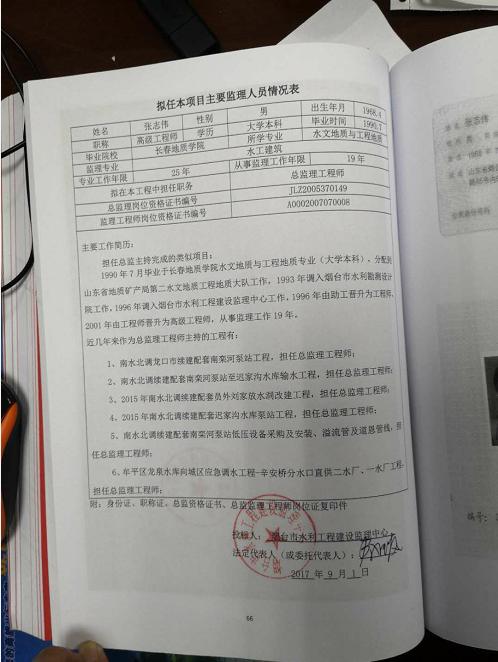 拟任本项目主要监理人员情况表
姓名 张志伟 性别 男 出生年月 1968.4
职称 高级工程师 学历 大学本科 毕业时间 1990.7
毕业院校 长春地质学院 所学专业 水文地质与工程地质
监理专业 水工建筑
专业工作年限 25年 从事监理工作年限 19年
拟在本工程中担任职务 总监理工程师
总监理岗位资格证书编号 JLZ2005370149
监理工程师岗位资格证书编号 A0002007070008
主要工作简历：
担任总监主持完成的类似项目：
1990年7月毕业于长春地质学院水文地质与工程地质专业（大学本科），分配到
山东省地质矿产局第二水文地质工程地质大队工作，1993年调入烟台市水利勘测设计
院工作，1996年调入烟台市水利工程建设监理中心工作，1996年由助工晋升为工程师，
2001年由工程师晋升为高级工程师，从事监理工作19年。
近几年来作为总监理工程师主持的工程有：
1、南水北调龙口市续建配套南栾河泵站工程，担任总监理工程师；
2、南水北调续建配套南栾河泵站至迟家沟水库输水工程，担任总监理工程师；
3、2015年南水北调续建配套员外刘家放水洞改建工程，担任总监理工程师；
4、2015年南水北调续建配套迟家沟水库泵站工程，担任总监理工程师；
5、南水北调续建配套南栾河泵站低压设备采购及安装、溢流管及道恩管线，担
任总监理工程师；
6、牟平区龙泉水库向城区应急调水工程-辛安桥分水口直供二水厂、一水厂工程，
担任总监理工程师；
附：身份证、职称证、总监资格证书、总监监理工程师岗位证复印件
投标人：烟台市水利工程建设监理中心
法定代表人（或委托代表人）：
2017年9月1日
66
张志伟
编号：